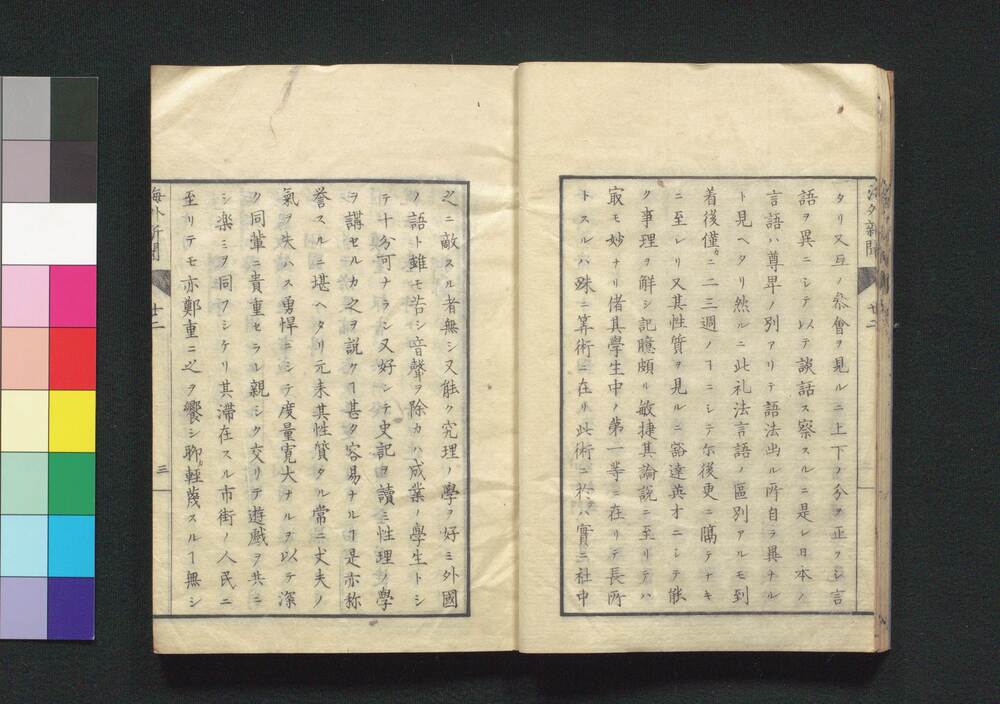 タリ又互ノ参會ヲ見ルニ上下ノ分ヲ正フシ言
語ヲ異ニシテ以テ談話ス察スルニ是レ日本ノ
言語ハ尊卑ノ別アリテ語法出ル所自ラ異ナル
ト見ヘタリ然ルニ此礼法言語ノ區別アルモ到
着後僅カニ二三週ノヿニシテ尓後更ニ隔テナキ
ニ至レリ又其性質ヲ見ルニ豁達英才ニシテ能
ク事理ヲ解シ記臆頗ル敏捷其論説ニ至リテハ
㝡モ妙ナリ偖其學生中ノ第一等ニ在リテ長所
トスルハ殊ニ算術ニ在リ此術ニ於ハ實ニ社中
之ニ敵スル者無シ又能ク究理ノ學ヲ好ミ外國
ノ語ト雖モ若シ音聲ヲ除カハ成業ノ學生トシ
テ十分可ナラン又好シテ史記ヲ讀ミ性理ノ學
ヲ講セルカ之ヲ説クヿ甚タ容易ナルヿ是亦称
誉スルニ堪ヘタリ元来其性質タル常ニ丈夫ノ
氣ヲ失ハス勇悍ニシテ度量寛大ナルヲ以テ深
ク同輩ニ貴重セラレ親シク交リテ遊戲ヲ共ニ
シ楽ミヲ同フシケリ其滞在スル市街ノ人民ニ
至リテモ亦鄭重ニ之ヲ饗シ聊カ輕蔑スルヿ無シ
海外新聞 廿二 三